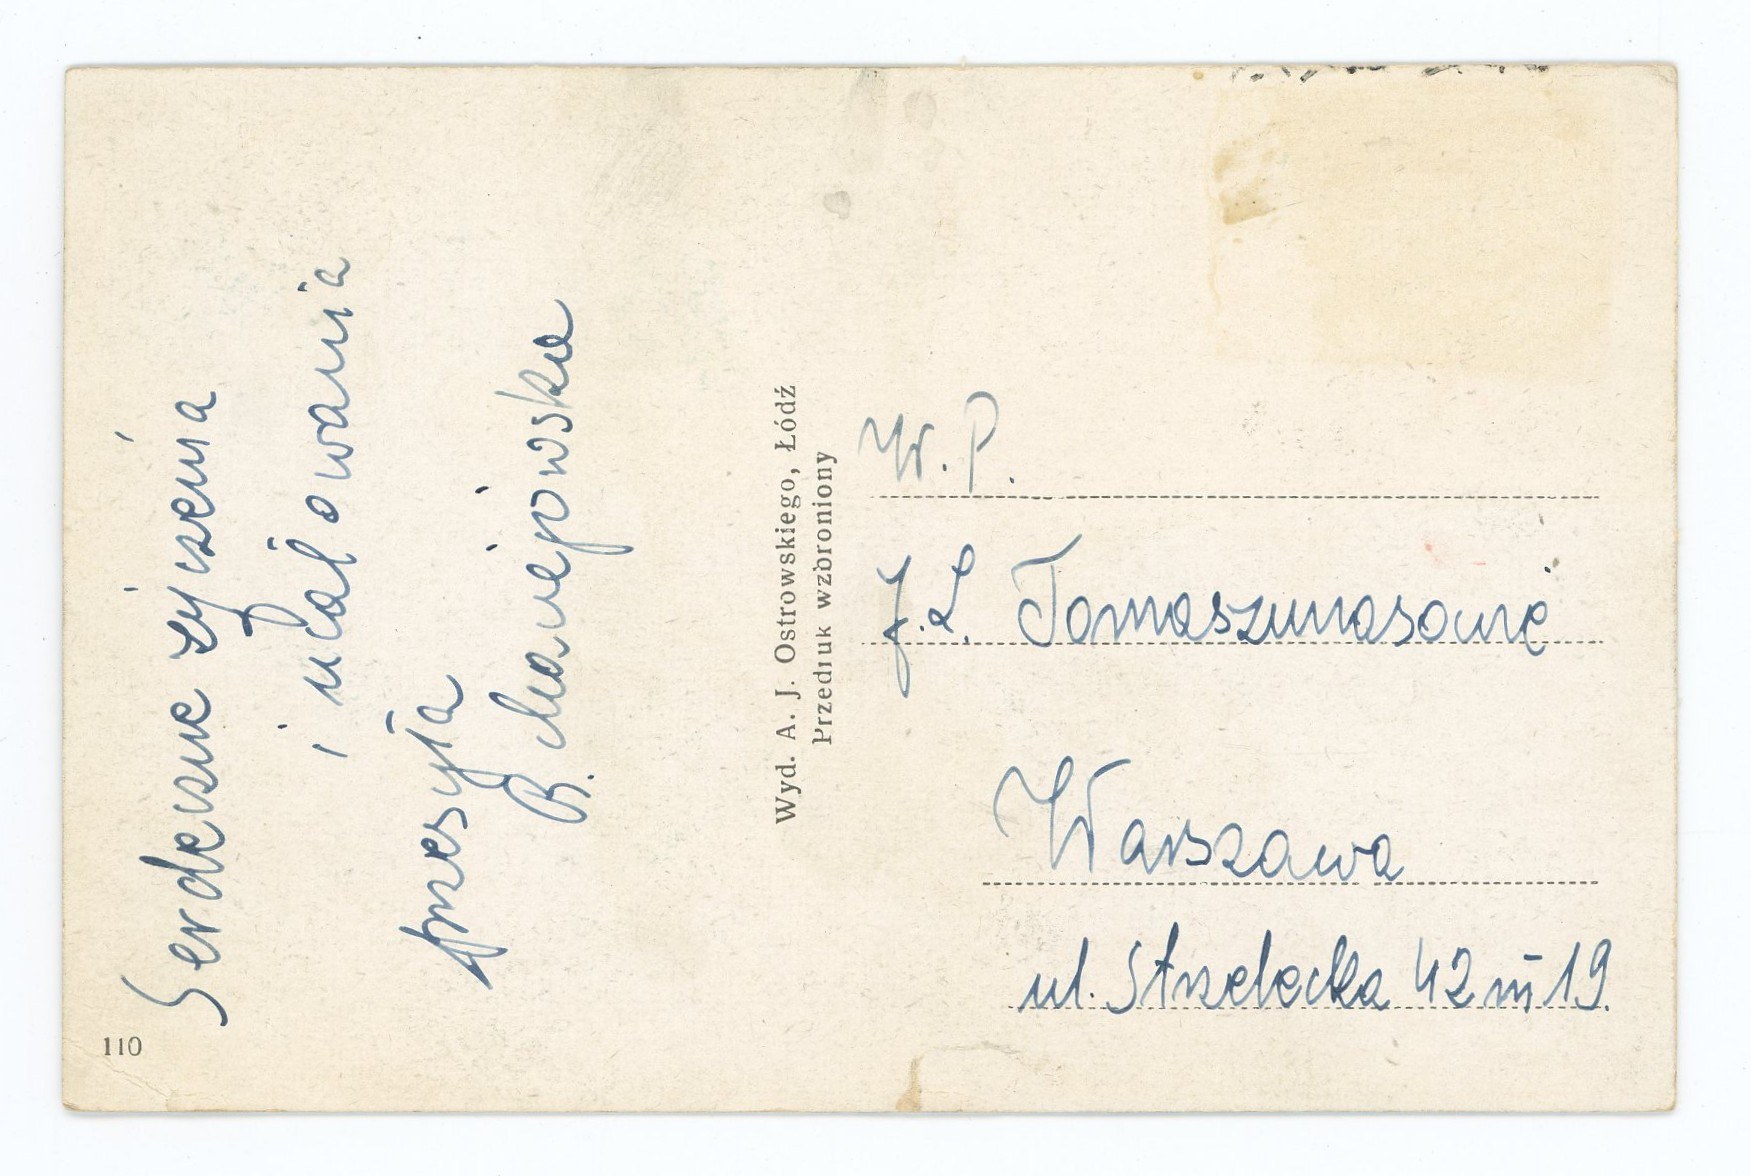 Serdeczne życzenia
i ucałowania
przesyła
B. Maniejowska
110
Wyd. A. J. Ostrowskiego, Łódź
Przedruk wzbroniony
W. P.
J. L. Tomaszunasowie
Warszawa
ul. Strzelecka 42 m 19.